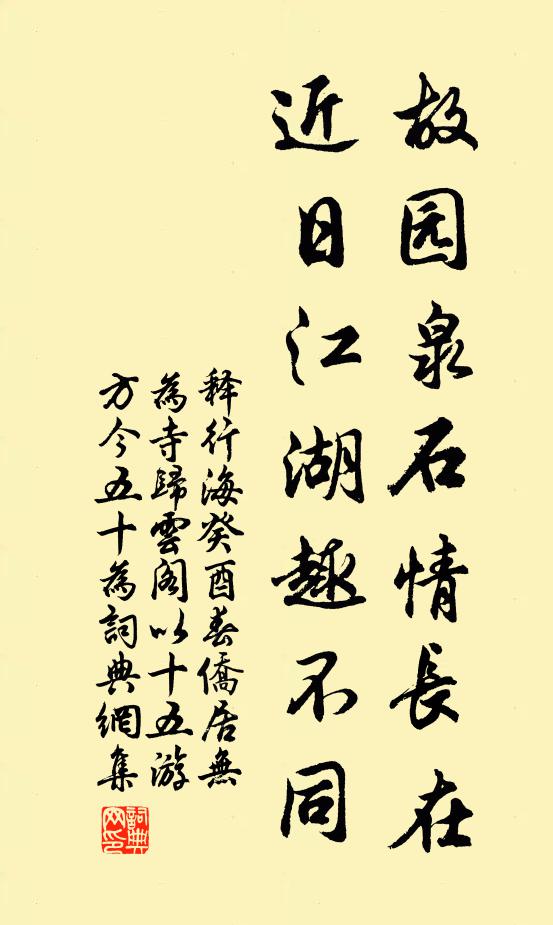 故园泉石情長在
近日江湖趣不同
释行海癸酉春僑居無
為寺歸雲阁以十五游
方今五十為詞典網集
詞典
网印